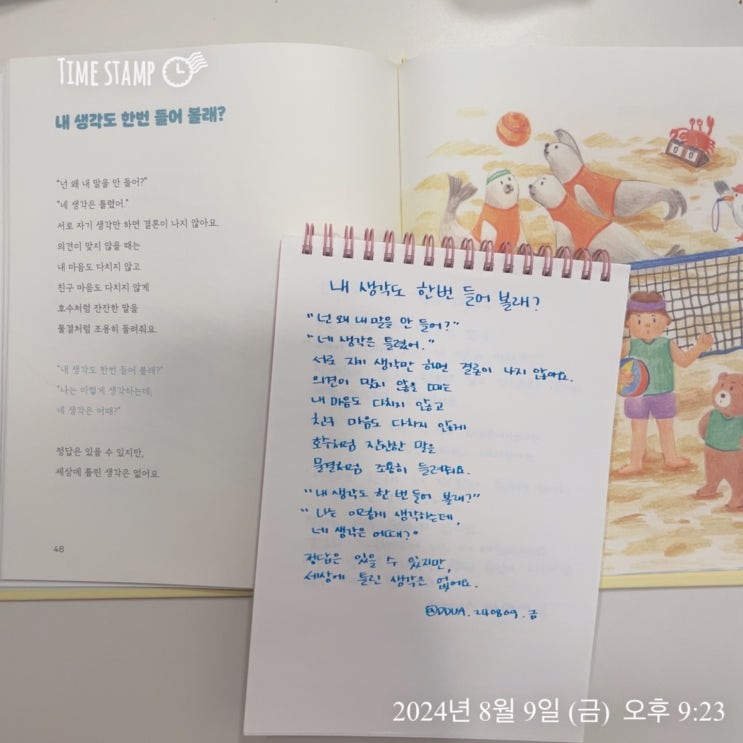 TIME STAMP
내 생각도 한번 들어 볼래?
"넌 왜 내 말을 안 들어?"
"네 생각은 틀렸어."
서로 자기 생각만 하면 결론이 나지 않아요.
의견이 맞지 않을 때는
내 마음도 다치지 않고
친구 마음도 다치지 않게
호수처럼 잔잔한 말을
물결처럼 조용히 들려줘요.
"내 생각도 한번 들어 볼래?"
"나는 이렇게 생각하는데,
네 생각은 어때?"
정답은 있을 수 있지만,
세상에 틀린 생각은 없어요.
48
내 생각도 한번 들어 볼래?
"넌 왜 내 말을 안 들어?"
"네 생각은 틀렸어."
서로 자기 생각만 하면 결론이 나지 않아요.
의견이 맞지 않을 때는
내 마음도 다치지 않고
친구 마음도 다치지 않게
호수처럼 잔잔한 말을
물결처럼 조용히 들려줘요.
"내 생각도 한 번 들어 볼래?"
"나는 이렇게 생각하는데,
네 생각은 어때?"
정답은 있을 수 있지만,
세상에 틀린 생각은 없어요.
@DDUA. 240809.금
0 0
2024년 8월 9일 (금) 오후 9:23